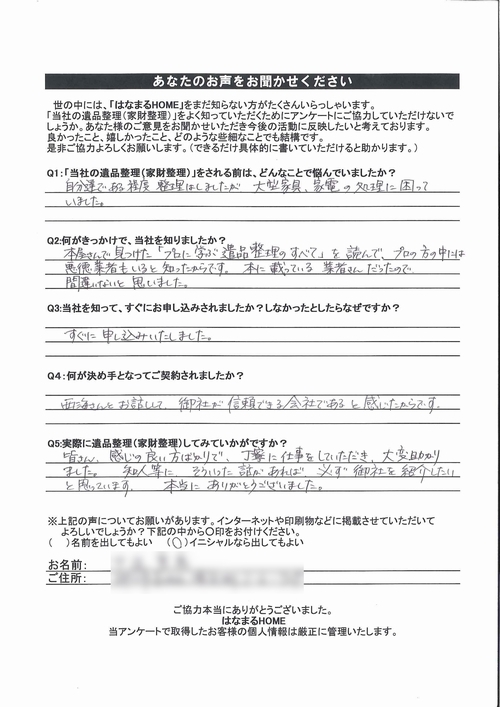 あなたのお声をお聞かせください
世の中には、「はなまるHOME」をまだ知らない方がたくさんいらっしゃいます。
「当社の遺品整理(家財整理)」をよく知っていただくためにアンケートにご協力していただけないで
しょうか。あなた様のご意見をお聞かせいただき今後の活動に反映したいと考えております。
良かったこと、嬉しかったこと、どのような些細なことでも結構です。
是非ご協力よろしくお願いします。(できるだけ具体的に書いていただけると助かります。)
Q1:「当社の遺品整理(家財整理)」をされる前は、どんなことで悩んでいましたか?
自分達である程度 整理はしましたが 大型家具、家電の処理に困って
いました。
Q2:何がきっかけで、当社を知りましたか?
本屋さんで見つけた「プロに学ぶ遺品整理のすべて」を読んで、プロの方の中には
悪徳業者もいると知ったからです。本に載っている業者さんだったので
間違いないと思いました。
Q3:当社を知って、すぐにお申し込みされましたか?しなかったとしたらなぜですか?
すぐに申し込みいたしました。
Q4:何が決め手となってご契約されましたか?
西海さんとお話しして、御社が信頼できる会社であると感じたからです。
Q5:実際に遺品整理(家財整理)してみていかがですか?
皆さん、感じの良い方ばかりで、丁寧に仕事をしていただき、大変助かり
ました。 知人等に、そういった話があれば、必ず御社を紹介したい
と思っています。 本当にありがとうございました。
※上記の声についてお願いがあります。インターネットや印刷物などに掲載させていただいて
よろしいでしょうか?下記の中から〇印をお付けください。
( )名前を出してもよい (〇)イニシャルなら出してもよい
お名前:
ご住所:
ご協力本当にありがとうございました。
はなまるHOME
当アンケートで取得したお客様の個人情報は厳正に管理いたします。